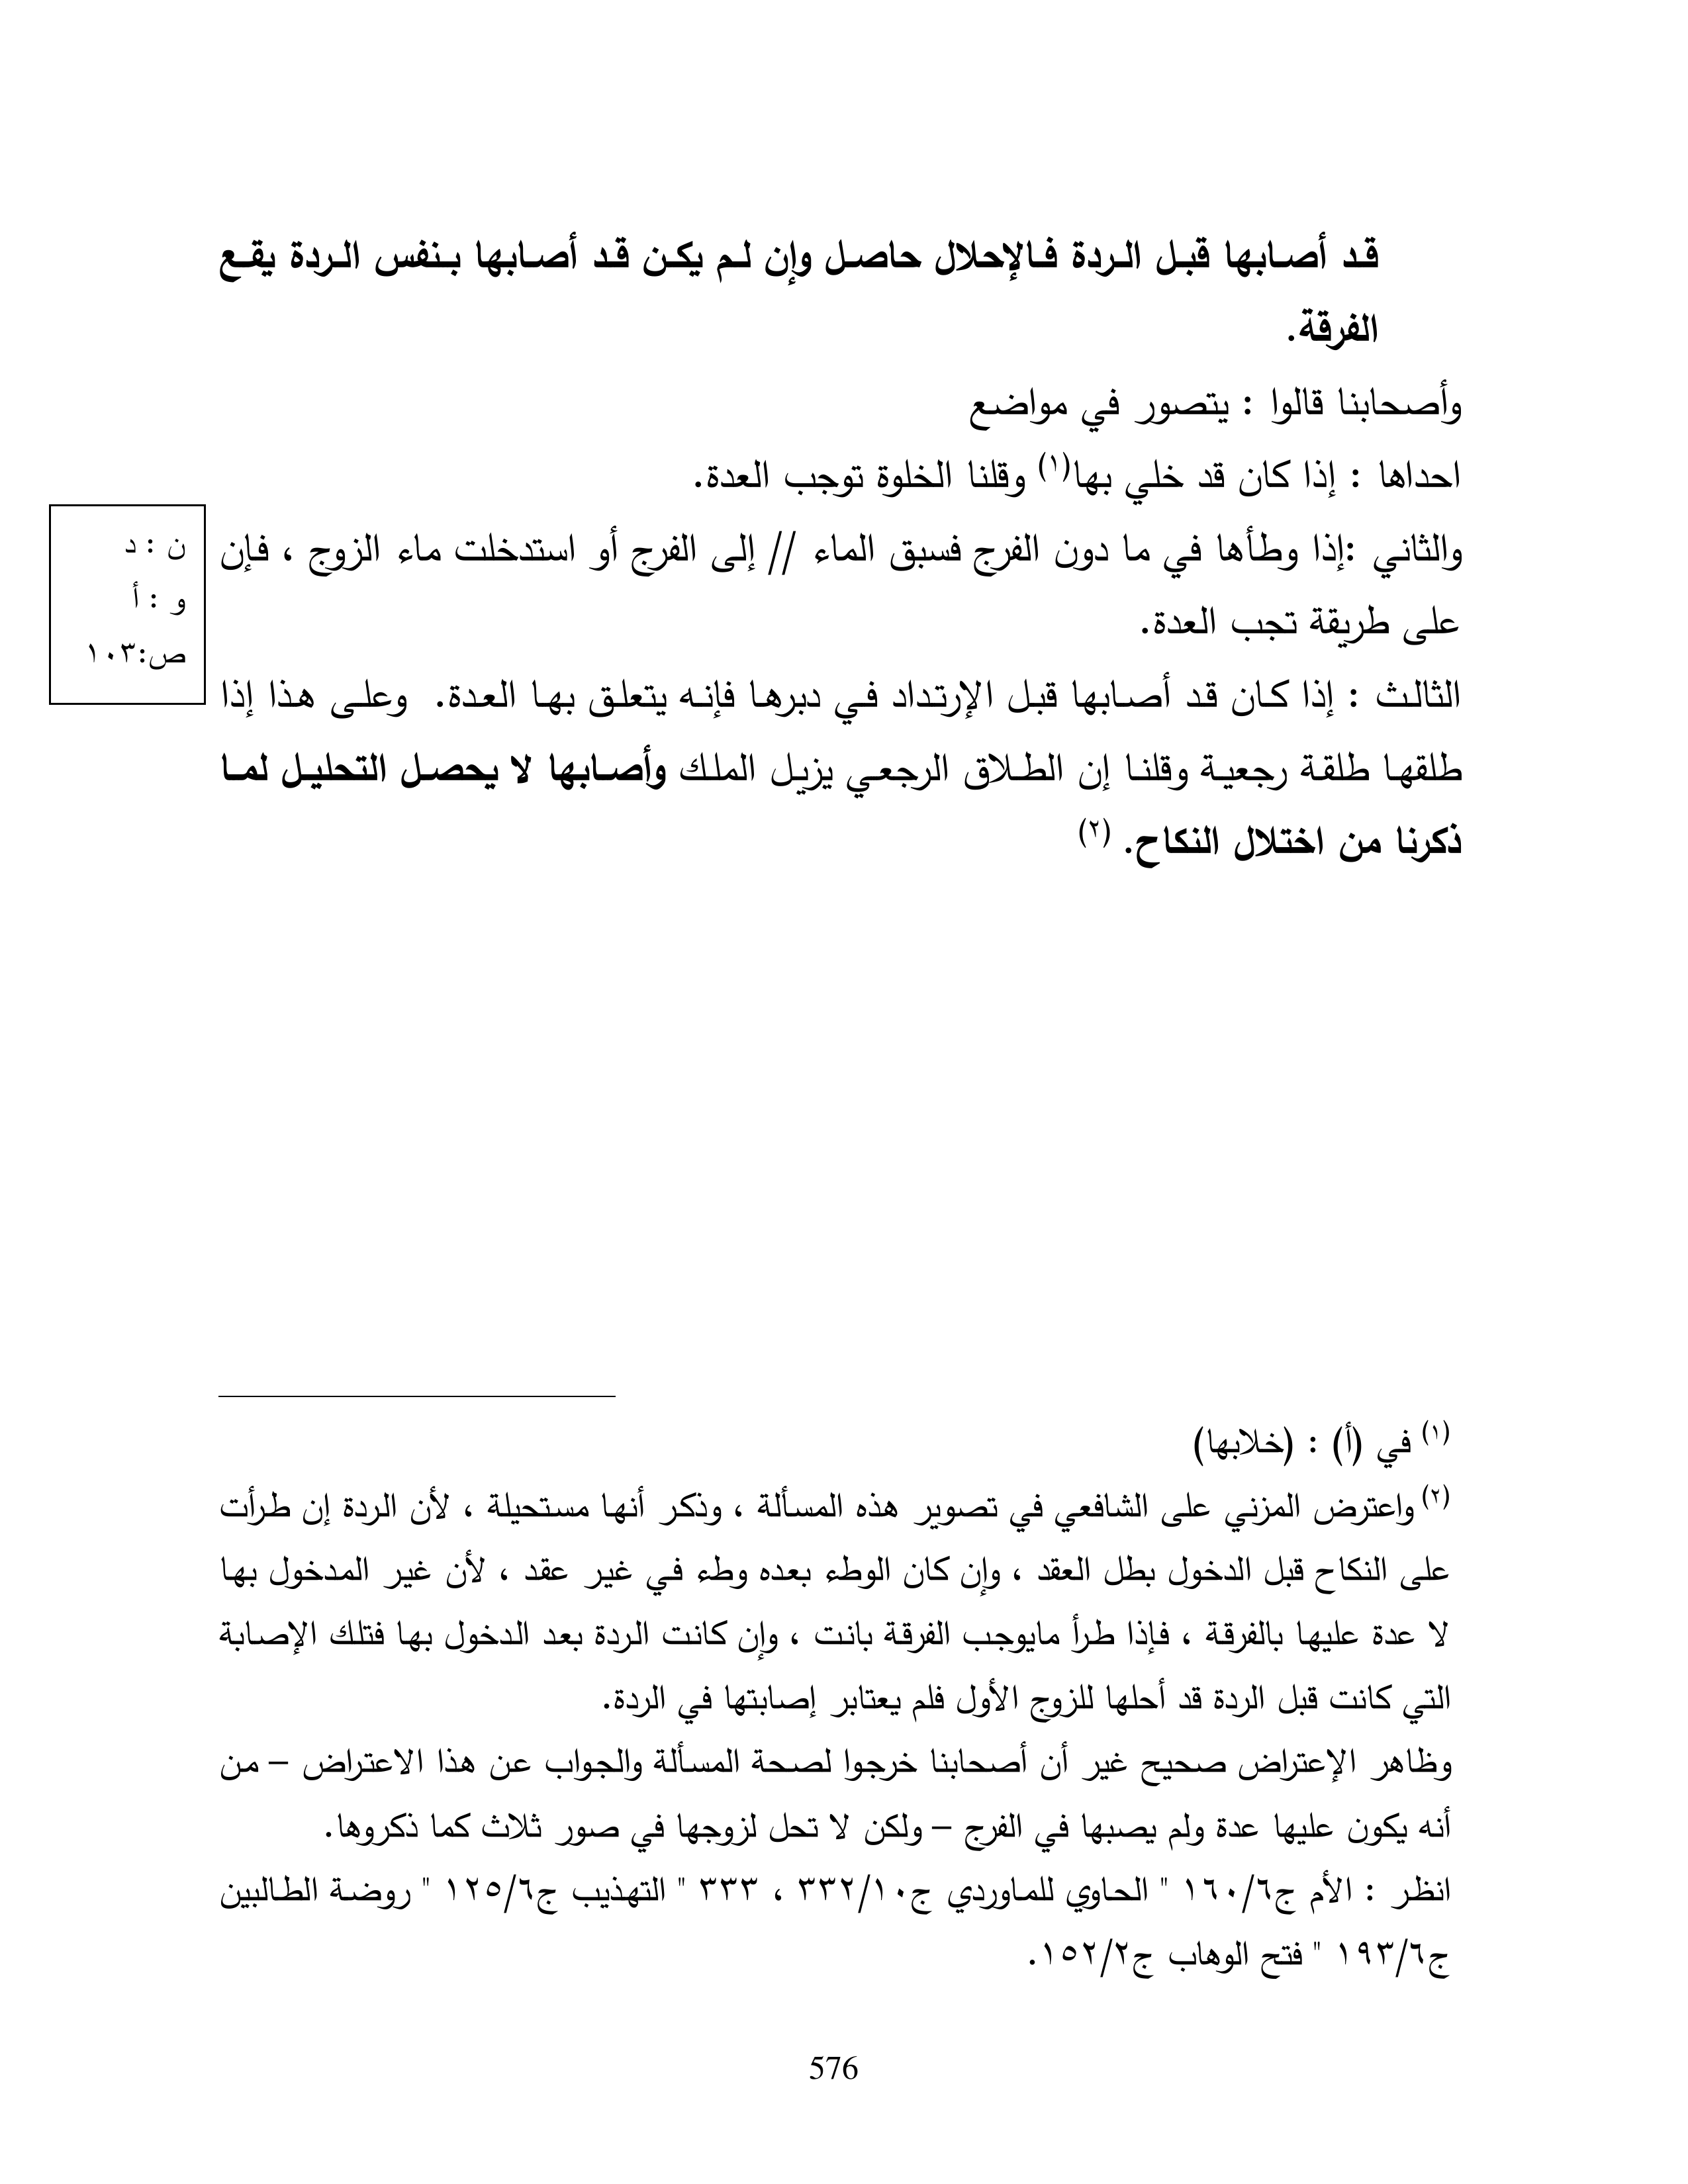 قد أصابها قبل الردة فالإحلال حاصل وإن لم يكن قد أصابها بنفس الردة يقع
الفرقة.
وأصحابنا قالوا : يتصور في مواضع
احداها : إذا كان قد خلي بها(١) وقلنا الخلوة توجب العدة.
والثاني :إذا وطأها في ما دون الفرج فسبق الماء // إلى الفرج أو استدخلت ماء الزوج ، فإن
على طريقة تجب العدة.
الثالث : إذا كان قد أصابها قبل الإرتداد في دبرها فإنه يتعلق بها العدة. وعلى هذا إذا
طلقها طلقة رجعية وقلنا إن الطلاق الرجعي يزيل الملك وأصابها لا يحصل التحليل لما
ذكرنا من اختلال النكاح. (٢)
ن : د
و : أ
ص:١٠٣
(١) في (أ) : (خلابها)
(٢) واعترض المزني على الشافعي في تصوير هذه المسألة ، وذكر أنها مستحيلة ، لأن الردة إن طرأت
على النكاح قبل الدخول بطل العقد ، وإن كان الوطء بعده وطء في غير عقد ، لأن غير المدخول بها
لا عدة عليها بالفرقة ، فإذا طرأ مايوجب الفرقة بانت ، وإن كانت الردة بعد الدخول بها فتلك الإصابة
التي كانت قبل الردة قد أحلها للزوج الأول فلم يعتابر إصابتها في الردة.
وظاهر الإعتراض صحيح غير أن أصحابنا خرجوا لصحة المسألة والجواب عن هذا الاعتراض – من
أنه يكون عليها عدة ولم يصبها في الفرج – ولكن لا تحل لزوجها في صور ثلاث كما ذكروها.
انظر : الأم ج٦/١٦٠ " الحاوي للماوردي ج١٠/٣٣٢ ، ٣٣٣ " التهذيب ج٦/١٢٥ " روضة الطالبين
ج٦/١٩٣ " فتح الوهاب ج٢/١٥٢.
576